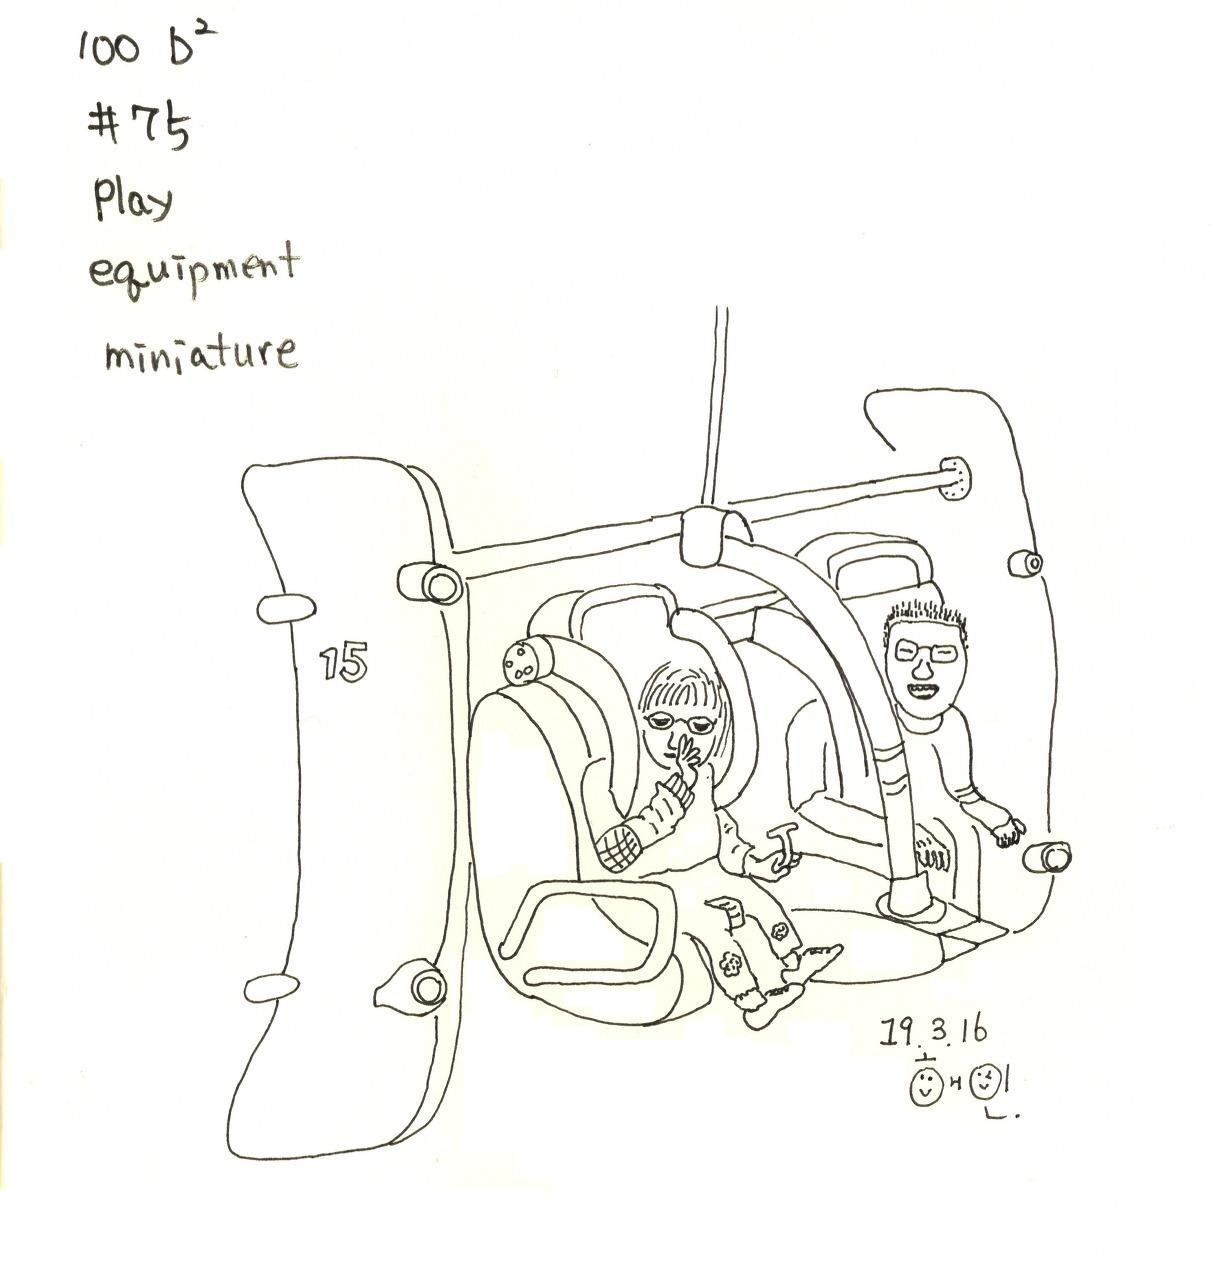 100 D²
#75
Play
equipment
miniature
15
19.3.16
해인.